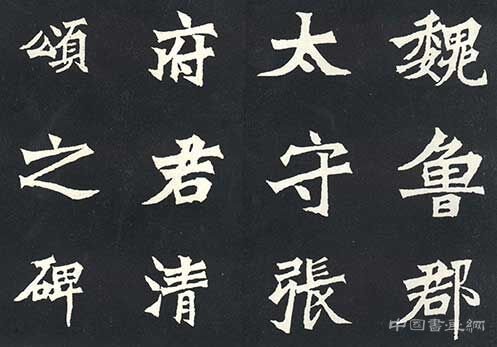 魏魯郡
太守張
府君清
頌之碑
中国書画網